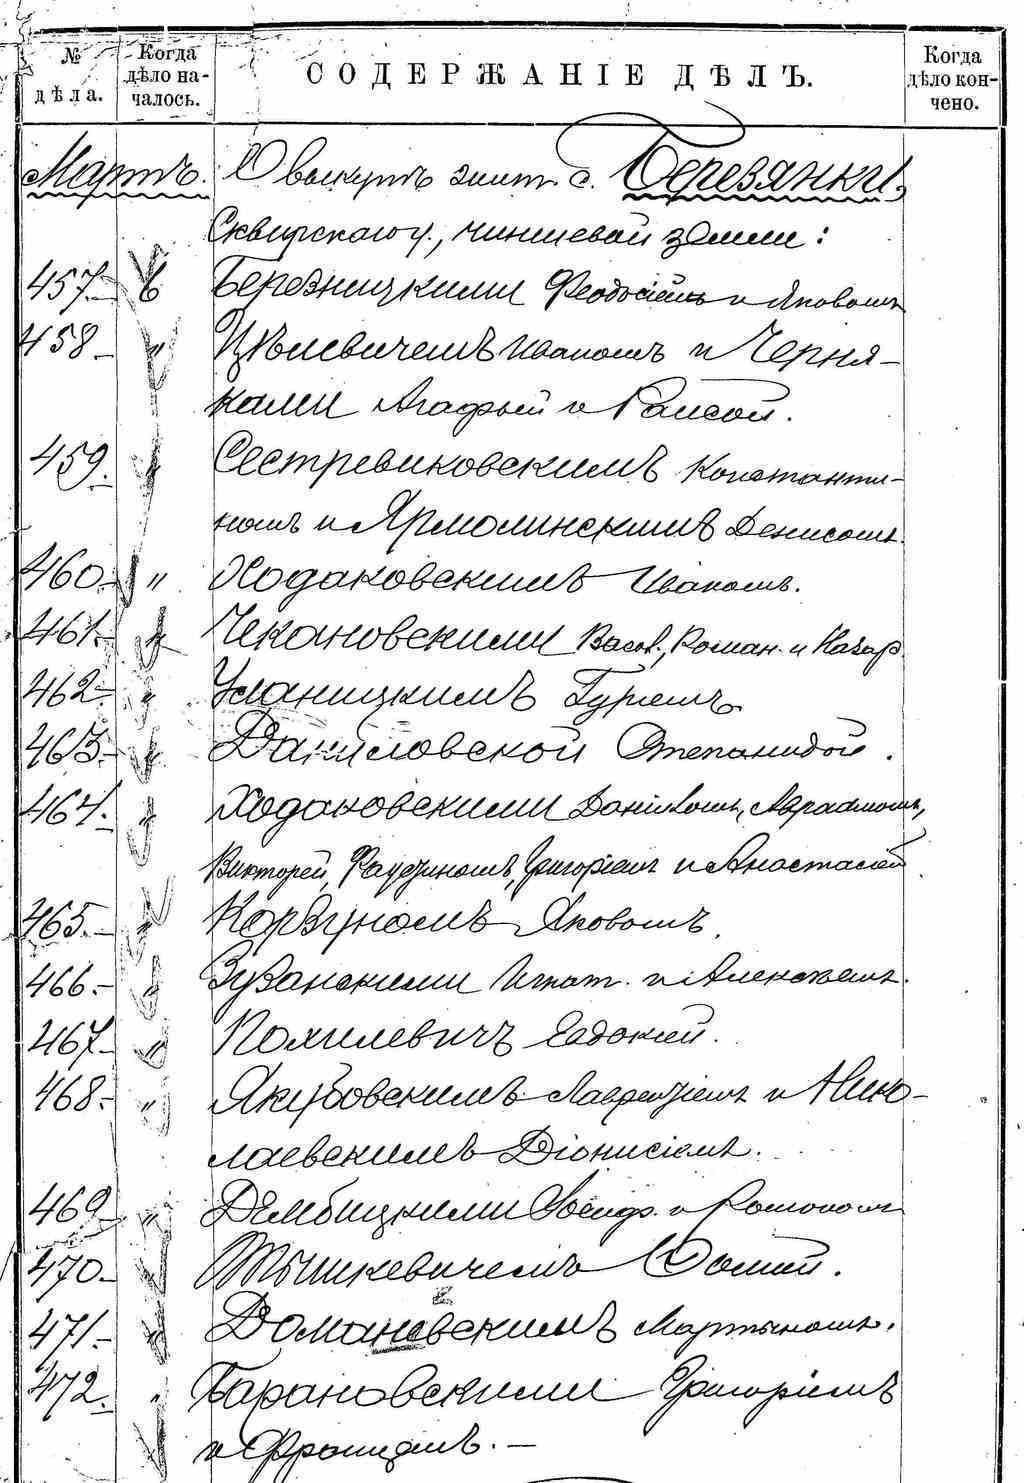 № дѣла. Когда дѣло началось. СОДЕРЖАНІЕ ДѢЛЪ. Когда дѣло кончено.
Мартъ. О выкупѣ жит. с. Березянки,
Сквирскаго у., чиншевой земли:
457. 6 Березницкими Феодосіемъ и Яковомъ
458 " Цѣлевичемъ Иваномъ и Черня-
ками Агафьей и Раисой.
459. " Сестревиковскимъ Константи-
номъ и Ярмолинскимъ Денисомъ.
460. " Ходаковскимъ Иваномъ.
461. " Чекановскими Васил., Роман. и Назар.
462. " Уланицкимъ Гуріемъ.
463. " Даниловской Степанидой.
464. " Ходаковскими Даніиломъ, Авраамомъ,
Викторіей, Григоріемъ и Анастасіей
465. " Корзуномъ Яковомъ.
466. " Зузанскими Игнат. и Алексѣемъ.
467 " Похилевичъ Евдокіей.
468. " Якубовскимъ Лаврентіемъ и Нико-
лаевскимъ Діонисіемъ.
469 " Дембицкими и Романомъ
470. " Тышкевичемъ Ѳомой.
471. " Домановскимъ Мартыномъ.
472. " Барановскими Григоріемъ
и Францемъ. —